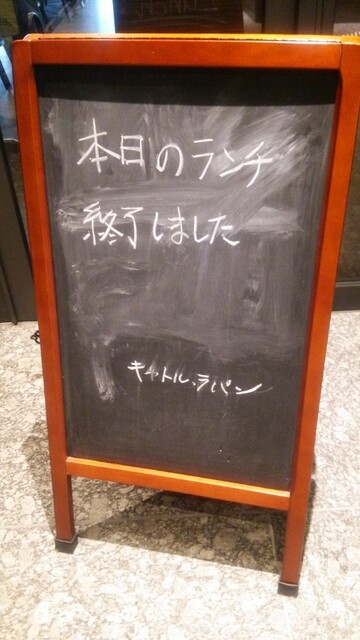 本日のランチ
終了しました
キャトル・ラパン